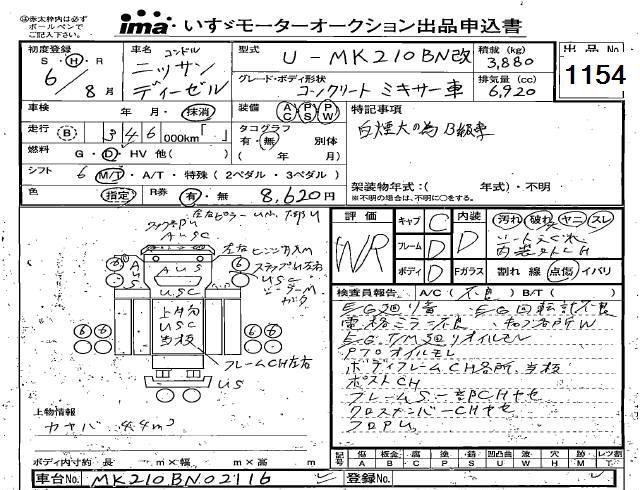 ④赤太枠内は必ずボールペンでご記入下さい。
ima いすゞモーターオークション出品申込書
初度登録 S・H・R 6/8月
車名 コンドル ニッサンディーゼル
型式 U-MK210BN改
積載(kg) 3,880
出品No 1154
グレード・ボディ形状 コンクリートミキサー車
排気量(cc) 6,920
車検 年 月・抹消
装備 AC PS PW
特記事項
白煙大の為B級車
走行 B 346,000km「 」
タコグラフ 有・無 別体 ( 年 月)
燃料 G・D・HV 他( )
シフト 6 M/T・A/T・特殊(2ペダル・3ペダル)
架装物年式:( 年式)・不明
※不明の場合は、不明に○をする。
色 指定 R券 有・無 8,620円
評価 WR
キャブ C 内装 D
フレーム D
ボディ D Fガラス
汚れ 破れ ヤニ スレ
割れ 線 点傷 イバリ
左右ピラーU小 下部U
AUSC
左右
AUS
AUS
USC
USC
左右
6 6 6 6
上物
USC
歪板
フレームCH左右
US
検査員報告 A/C(不良) B/T( )
EG廻り異 EG回転計不良
電格ミラー不良 W
EG T/M廻りオイルモレ
PTOオイルモレ
ボディフレームCH各所
ポストCH
フレームS一部PCHヤセ
クロスメンバーCHヤセ
フロアU
上物情報
カヤバ 4.4m3
ボディ内寸約 長 m×幅 m×高 m
記号 傷 板金 腐 塗 錆 凹凸曲 波 穴 跡 レツ割
A B C P S U W H M T
車台No. MK210BN02116
登録No.